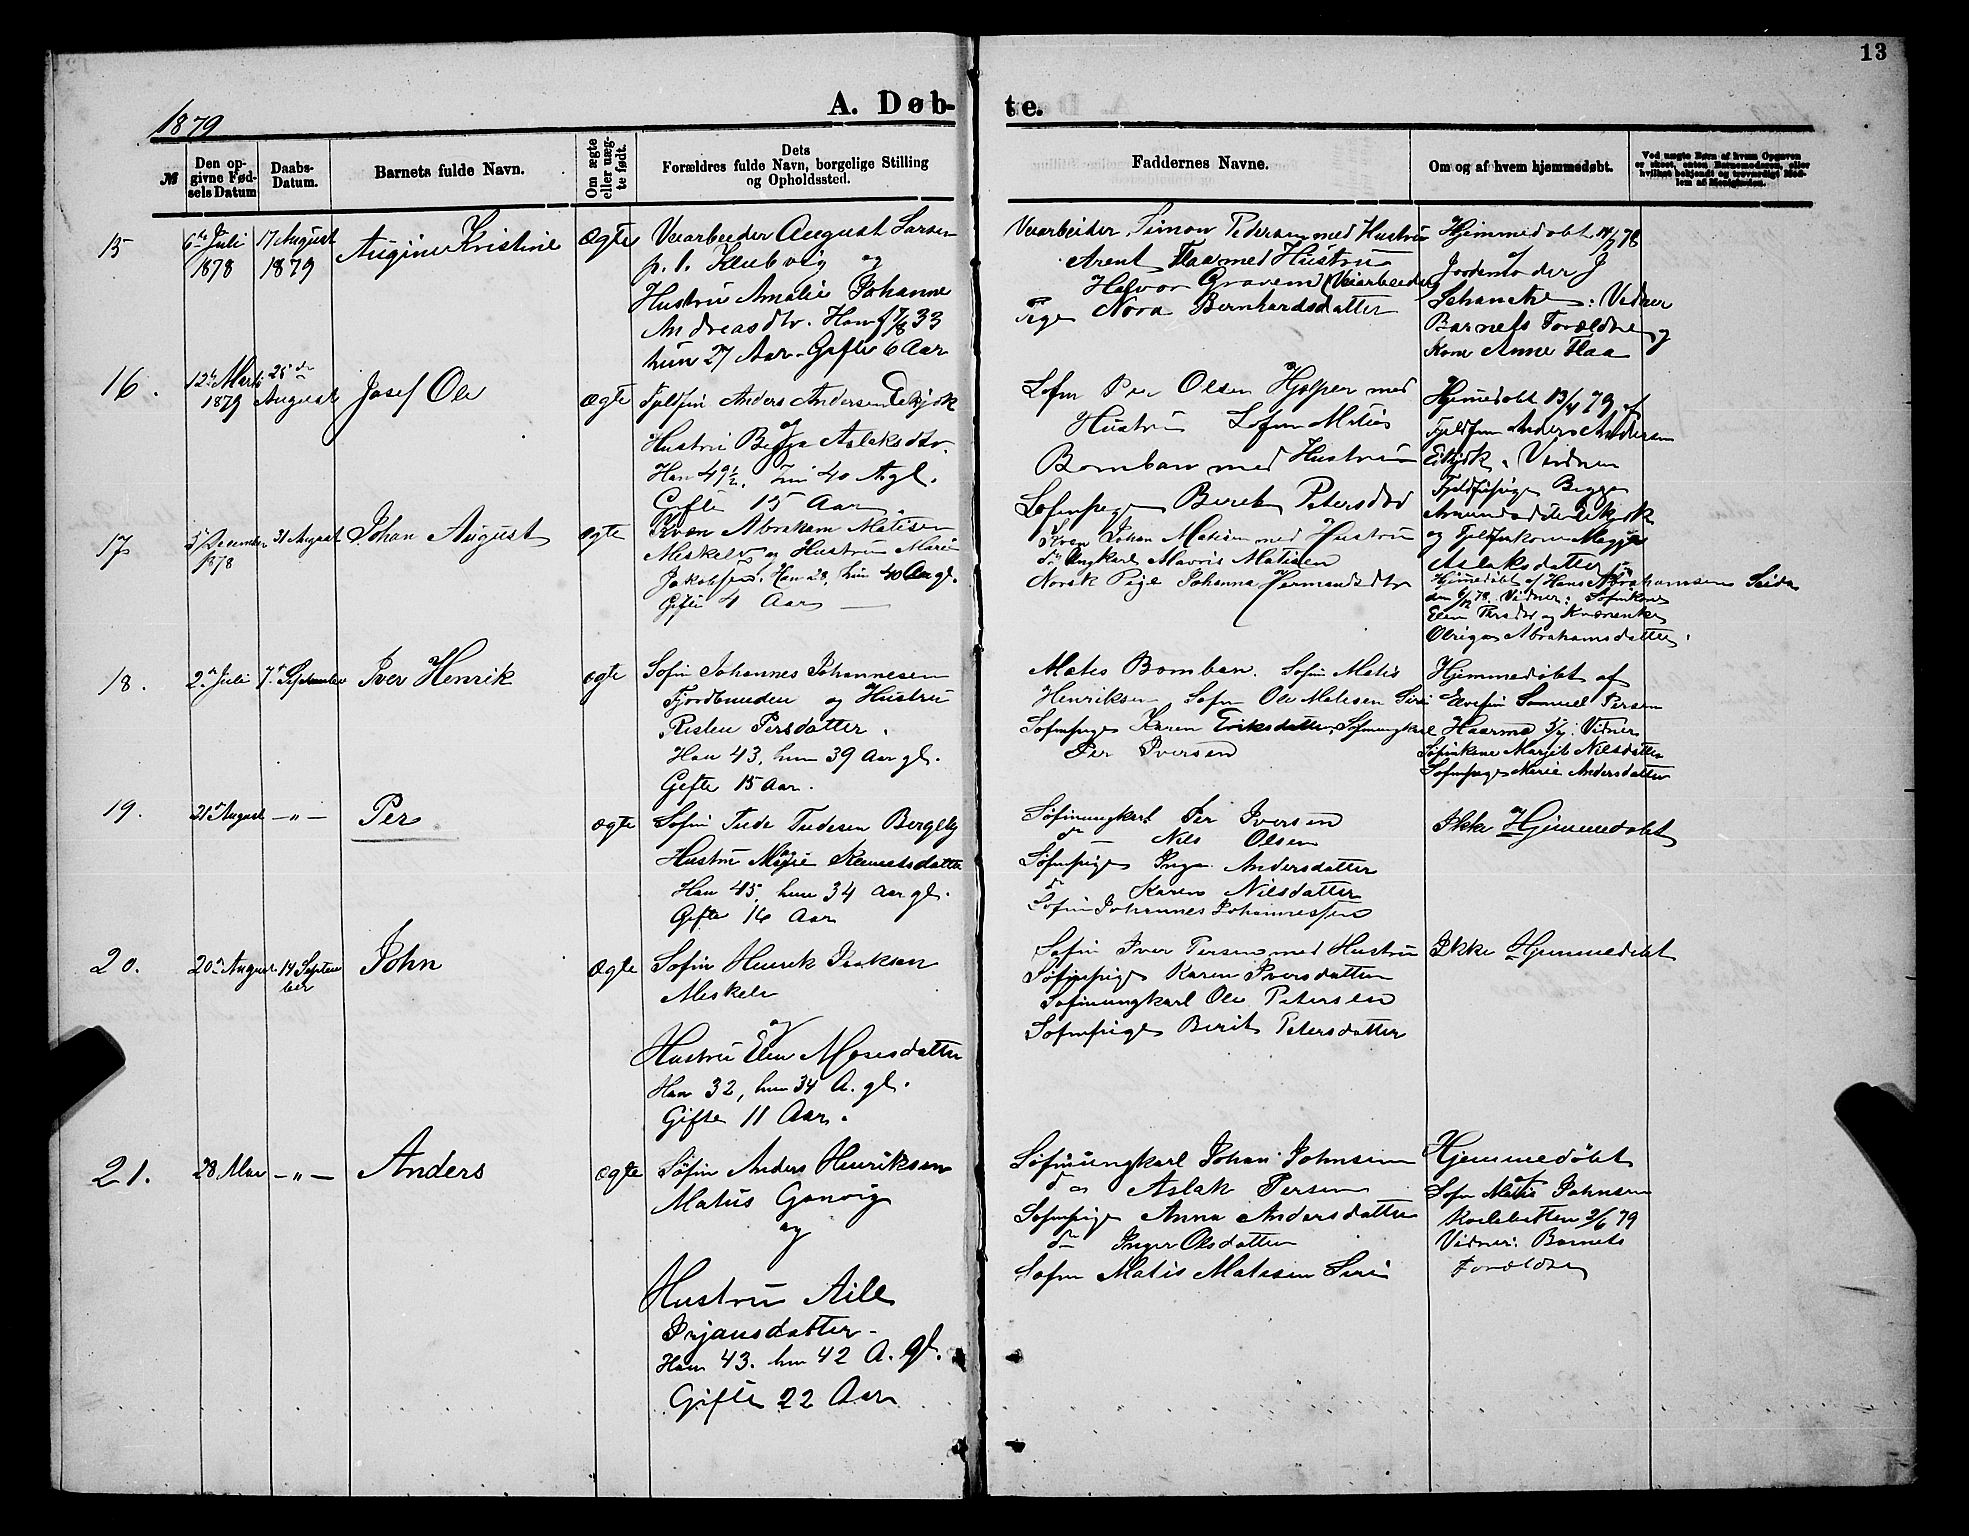 13
A. Døb-
te.
1879
№
Den op-
givne Fød-
sels Datum
Daabs-
Datum.
Barnets fulde Navn.
Om ægte
eller uæg-
te født.
Dets
Forældres fulde Navn, borgelige Stilling
og Opholdssted.
Faddernes Navne.
Om og af hvem hjemmedøbt.
Ved uægte Børn af hvem Opgaven
er skeet, enten Barnemoderen, eller
hvilket bekjendt og troværdigt Med-
lem af Menigheden.
15
6te Juli
1878
17 August
1879
Augine Kristine
Ægte
August Larsen
p. t. Klubvig og
Hustru Amalie Johanne
Andreasdtr. Han f 7/8 33
hun 27 Aar. Gifte 6 Aar
Veiarbeider Simon Pedersen med Hustru
Arent Flaa med Hustru
Halvor Gravem (Veiarbeider)
Pige Nora Bernhardsdatter
Hjemmedøbt 14/7 78
Jordemoder J
Schanche: Vidner
Barnets Forældre og
Kone Anne Flaa
16.
12te Marts
1879
25de
August
Josef Ole
ægte
Fjeldfin Anders Andersen
og
Hustru Aslaksdtr.
Han 49 1/2, hun 40 A gl.
Gifte 15 Aar.
Per Olsen Hjelper med
Hustru Matis
Bomban med Hustru
Berit Petersdtr
Hjemedøbt 13/4 79 af
Fjeldfin Anders Andersen
Vidner
Fjeldfinpige
og Fjeldfinkone
Aslaksdatter
17
5 December
1878
31 August
Johan August
ægte
Kvæn Abraham Matisen
Meskelv og Hustru Marie
Han 28, hun 40 Aar gl.
Gifte 4 Aar
Kvæn Johan Matisen med Hustru
do Ungkarl Matisen
Norsk Pige Johanna Hermandsdtr
Hjemmedøbt af Hans Abrahamsen Seida
den 6/12 78. Vidner: Søfinkone
Elen Persdtr og Kvænenke
Abrahamsdatter.
18.
2den Juli
7de September
Iver Henrik
ægte
Søfin Johannes Johannesen
Fjordbunden og Hustru
Risten Persdatter.
Han 43, hun 39 Aar gl.
Gifte 15 Aar.
Mates Bomban. Søfin Matis
Henriksen Søfin Ole Matisen Siri
Søfinpige Karen Eriksdatter, Søfinungkarl
Per Iversen
Hjemmedøbt af
Elvefin Samuel Persen
Haarma 5/7. Vidner
Søfinkone Marjit Nilsdatter
Søfinpige Marie Andersdatter
19.
21de August
— " —
Per
ægte
Søfin Tude Tudesen Bergeby
og
Hustru
Han 45, hun 34 Aar gl.
Gifte 16 Aar
Søfinungkarl Per Iversen
do Nils Olsen
Søfinpige Inga Andersdatter
do Karen Nilsdatter
Søfin Johannes Johannessen
Ikke Hjemmedøbt
20.
20de August
14 Septem
ber
John
Ægte
Søfin Henrik Isaksen
Meskelv
og
Hustru Elen Mosesdatter
Han 32, hun 34 A. gl.
Gifte 11 Aar.
Søfin Iver Persen med Hustru
Søfinpige Karen Iversdatter
Søfinungkarl Ole Petersen
Søfinpige Berit Petersdatter
Ikke Hjemmedøbt
21.
28 Mai
— " —
Anders
ægte
Søfin Anders Henriksen
Matius Gonvig
og
Hustru Aile
Prjansdatter
Han 43. hun 42 A. gl.
Gifte 22 Aar
Søfinungkarl Johan Johnsen
do Aslak Persen
Søfinpige Anna Andersdatter
do Inger Olsdatter
Søfin Matis Matisen Siri
Hjemmedøbt
af
Søfin Matis Johnsen
2/6 79
Vidner: Barnets
Forældre